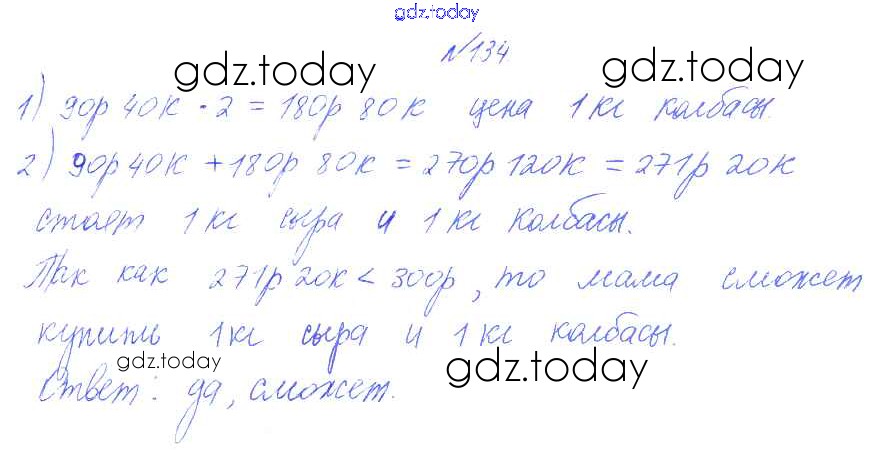 gdz.today
№134
gdz.today gdz.today
1) 90р 40к · 2 = 180р 80к цена 1 кг колбасы.
2) 90р 40к + 180р 80к = 270р 120к = 271р 20к
стоят 1 кг сыра и 1 кг колбасы.
Так как 271р 20к < 300р, то мама сможет
купить 1кг сыра и 1 кг колбасы.
gdz.today gdz.today
Ответ: да, сможет.